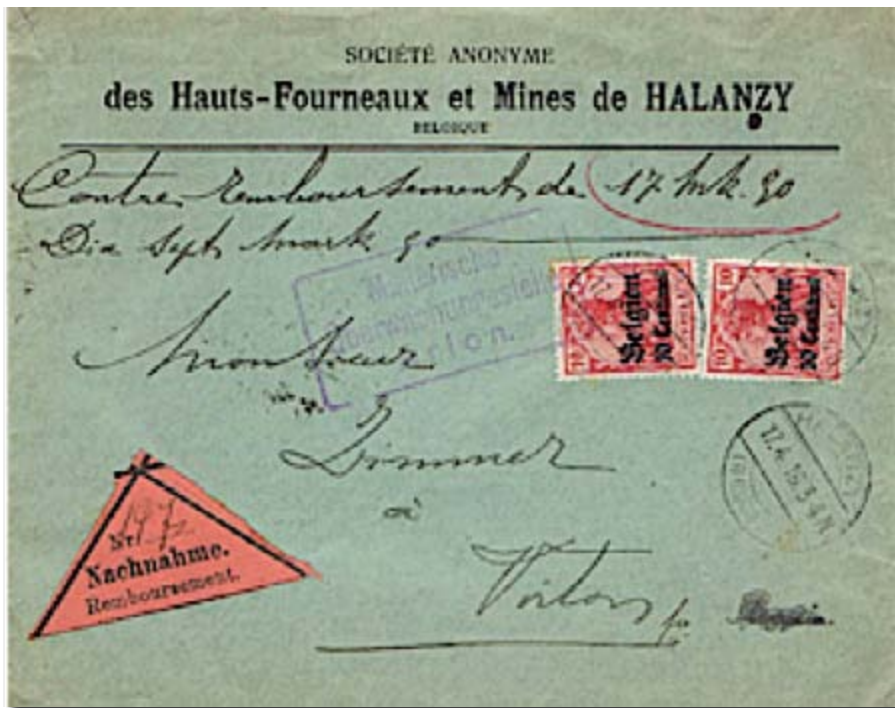 SOCIÉTÉ ANONYME
des Hauts-Fourneaux et Mines de HALANZY
BELGIQUE
Contre-remboursement de 17 Mk. 90
Dix Sept Mark 90
Belgien
Belgien
10
10
10
Monsieur
Zimmer
à
17.4.16.3-4N.
Nr.
Nachnahme.
Remboursement.